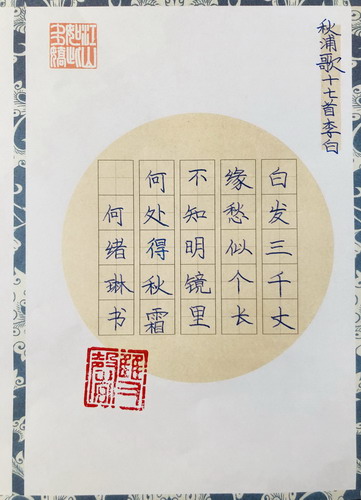 江山如此多娇
秋浦歌十七首李白
白发三千丈
缘愁似个长
不知明镜里
何处得秋霜
何绪琳书